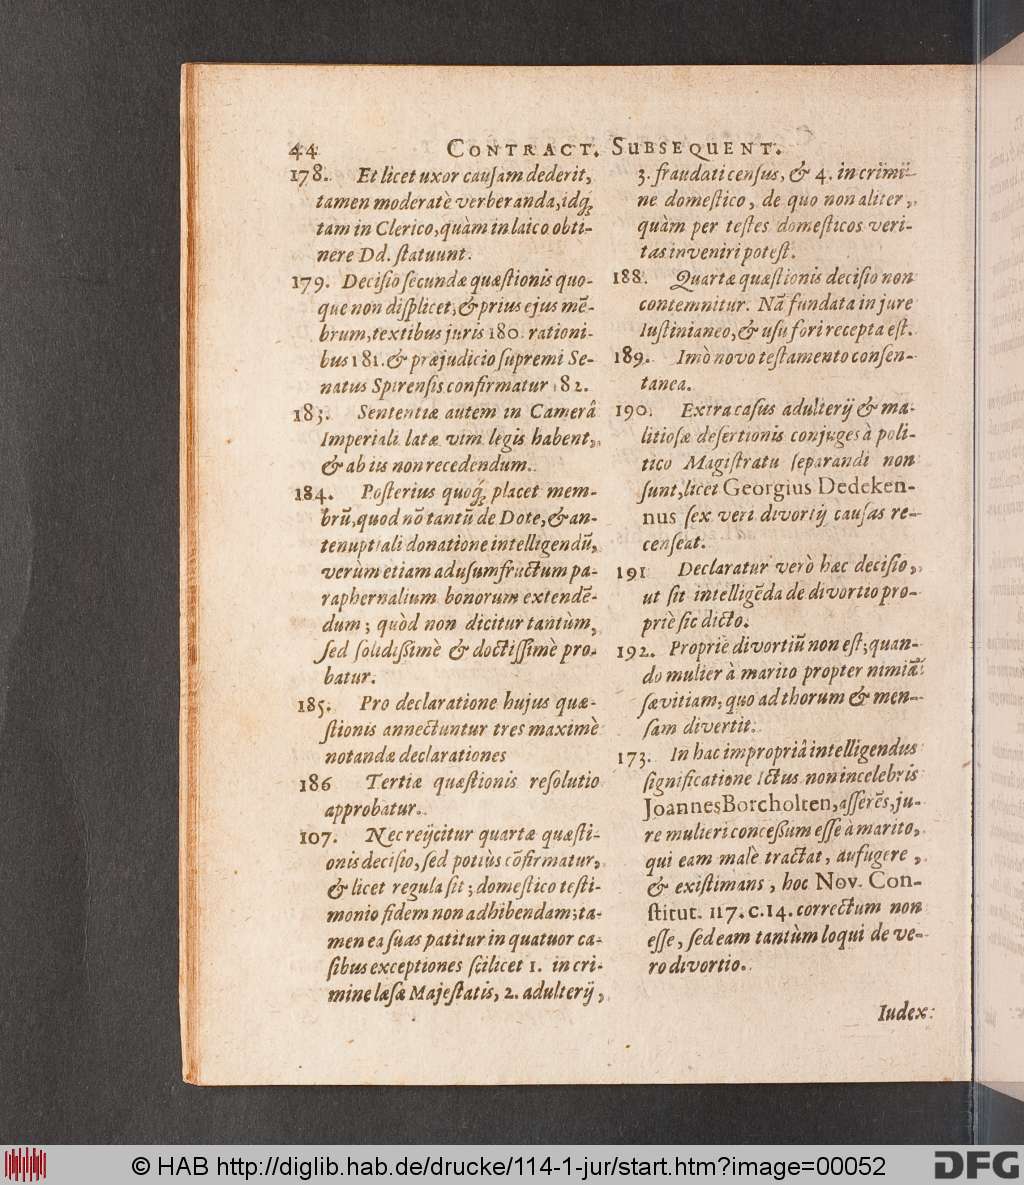 44 CONTRACT. SUBSEQUENT.
178. Et licet uxor cauſam dederit,
tamen moderatè verberanda, idq́;
tam in Clerico, quàm in laico obti-
nere Dd. ſtatuunt.
179. Deciſio ſecundæ quæſtionis quo-
que non diſplicet, & prius ejus mẽ-
brum, textibus juris 180. rationi-
bus 181. & præjudicio ſupremi Se-
natus Spirenſis confirmatur 182.
183. Sententiæ autem in Camerâ
Imperiali latæ vim legis habent,
& ab iis non recedendum.
184. Poſterius quoq́; placet mem-
brũ, quod nõ tantũ de Dote, & an-
tenuptiali donatione intelligendũ,
verùm etiam ad uſumfructum pa-
raphernalium bonorum extendẽ-
dum; quòd non dicitur tantùm,
ſed ſolidißimè & doctiſſimè pro-
batur.
185. Pro declaratione hujus quæ-
ſtionis annectuntur tres maximè
notandæ declarationes
186 Tertiæ quæſtionis reſolutio
approbatur.
107. Nec reijcitur quartæ quæſti-
onis deciſio, ſed potiùs cõfirmatur,
& licet regula ſit; domeſtico teſti-
monio fidem non adhibendam; ta-
men ea ſuas patitur in quatuor ca-
ſibus exceptiones ſcilicet 1. in cri-
mine læſæ Majeſtatis, 2. adulterij,
3. fraudati cenſus, & 4. in crimi-
ne domeſtico, de quo non aliter,
quàm per teſtes domeſticos veri-
tas inveniri poteſt.
188. Quartæ quæſtionis deciſio non
contemnitur. Nã fundata in jure
Iuſtinianeo, & uſu fori recepta eſt.
189. Imò novo teſtamento conſen-
tanea.
190. Extra caſus adulterij & ma-
litioſæ deſertionis conjuges à poli-
tico Magiſtratu ſeparandi non
ſunt, licet Georgius Dedeken-
nus ſex veri divortij cauſas re-
cenſeat.
191 Declaratur verò hæc deciſio,
ut ſit intelligẽda de divortio pro-
priè ſic dicto.
192. Propriè divortiũ non eſt, quan-
do mulier à marito propter nimiã
ſævitiam, quo ad thorum & men-
ſam divertit.
173. In hac impropriâ intelligendus
ſignificatione Ictus non incelebris
Joannes Borcholten, aſſerẽs, ju-
re mulieri conceßum eſſe à marito,
qui eam malè tractat, aufugere,
& exiſtimans, hoc Nov. Con-
ſtitut. 117. c. 14. correctum non
eſſe, ſed eam tantùm loqui de ve-
ro divortio.
Iudex
© HAB http://diglib.hab.de/drucke/114-1-jur/start.htm?image=00052
DFG